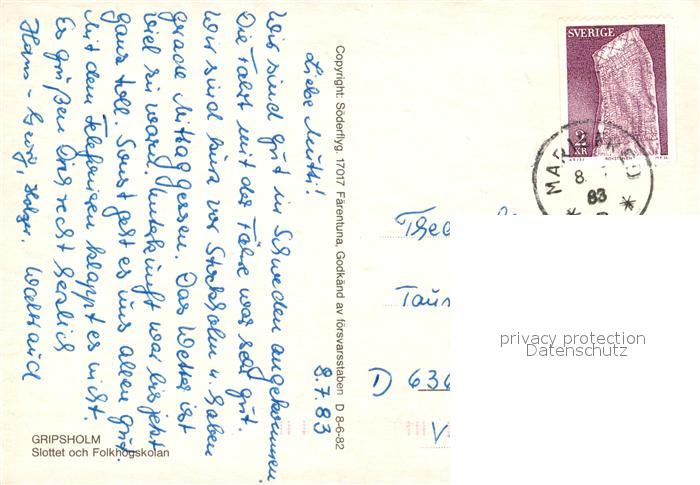 8.7.83
Liebe Mutti!
Wir sind gut in Schweden angekommen.
Die Fahrt mit der Fähre war sehr gut.
Wir sind kurz vor Stockholm u. haben
gerade Mittag gegessen. Das Wetter ist
viel zu warm. Unterkunft war bis jetzt
ganz toll. Sonst geht es uns allen gut.
Mit dem Telefonieren klappt es nicht.
Es grüßen Dich recht herzlich
Hans-Georg, Holger, Waltraud
GRIPSHOLM
Slottet och Folkhögskolan
Copyright: Söderflyg, 17017 Färentuna, Godkänd av försvarsstaben D 8-6-82
SVERIGE
2 KR
8.
83
Taun
D 636
privacy protection
Datenschutz